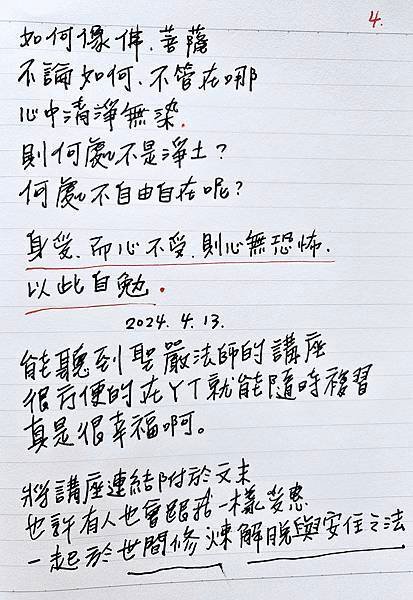 4.
如何像佛、菩薩
不論如何、不管在哪
心中清淨無染.
則何處不是淨土？
何處不自由自在呢？
身受、而心不受、則心無恐怖.
以此自勉.
2024. 4. 13.
能聽到聖嚴法師的講座
很方便的在YT就能隨時複習
真是很幸福啊。
將講座連結附於文末
也許有人也會跟我一樣受惠
一起於世間修煉解脫與安住之法